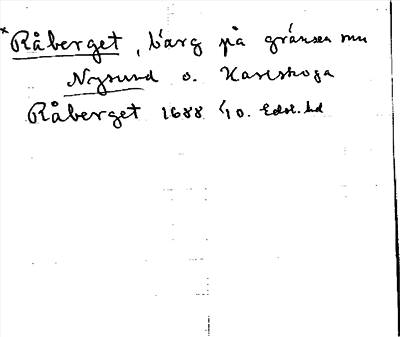 *Råberget, bärg på gränsen mn
Nysund o. Karlskoga
Råberget 1688 1/10. Edst. hd